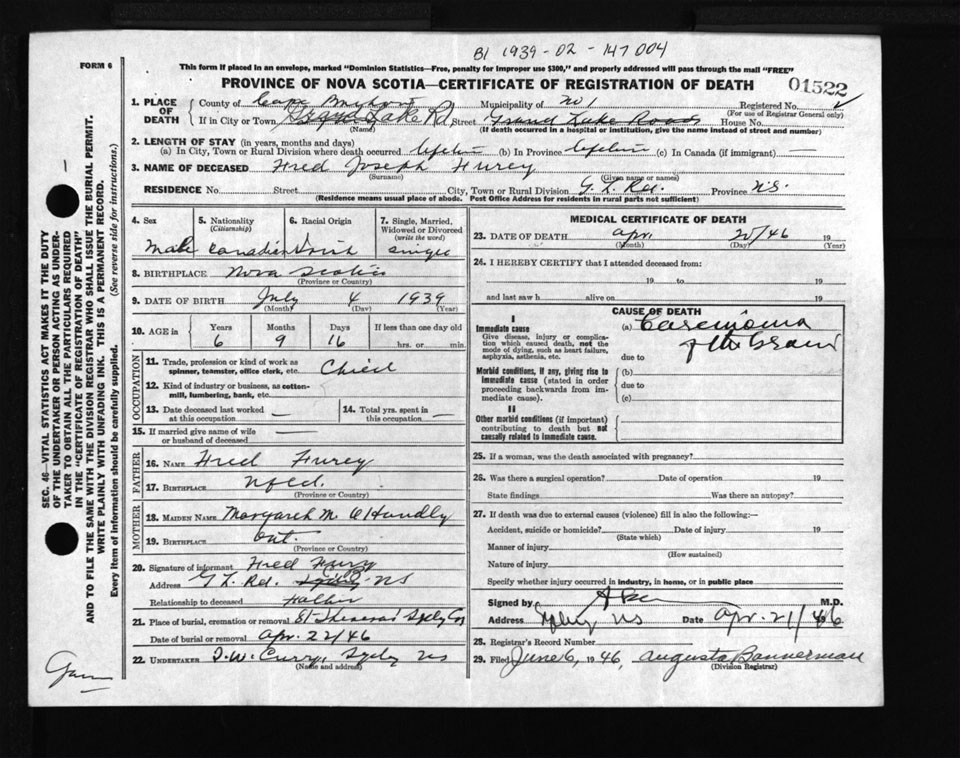 B1 1939-02-147004
FORM 6
This form if placed in an envelope, marked "Dominion Statistics—Free, penalty for improper use $300," and properly addressed will pass through the mail "FREE"
PROVINCE OF NOVA SCOTIA—CERTIFICATE OF REGISTRATION OF DEATH
01522
1. PLACE OF DEATH
County of Cape Breton Municipality of No 1 Registered No.
(For use of Registrar General only)
If in City or Town Lake Rd, Street Grand Lake Road House No.
(Name) (If death occurred in a hospital or institution, give the name instead of street and number)
2. LENGTH OF STAY (in years, months and days)
(a) In City, Town or Rural Division where death occurred lifetime (b) In Province lifetime (c) In Canada (if immigrant) —
3. NAME OF DECEASED Fred Joseph Furey
(Surname) (Given name or names)
RESIDENCE No. Street City, Town or Rural Division G. L. Rd. Province N.S.
(Residence means usual place of abode. Post Office Address for residents in rural parts not sufficient)
4. Sex Male
5. Nationality (Citizenship) Canadian
6. Racial Origin
7. Single, Married, Widowed or Divorced (write the word) single
8. BIRTHPLACE Nova Scotia
(Province or Country)
9. DATE OF BIRTH July 4 1939
(Month) (Day) (Year)
10. AGE in Years Months Days If less than one day old
6 9 16 hrs. or min.
OCCUPATION
11. Trade, profession or kind of work as spinner, teamster, office clerk, etc. Child
12. Kind of industry or business, as cotton-mill, lumbering, bank, etc.
13. Date deceased last worked at this occupation —
14. Total yrs. spent in this occupation —
15. If married give name of wife or husband of deceased —
FATHER
16. NAME Fred Furey
17. BIRTHPLACE Nfld.
(Province or Country)
MOTHER
18. MAIDEN NAME Margaret M.
19. BIRTHPLACE Ont.
(Province or Country)
20. Signature of informant Fred Furey
Address G L. Rd. NS
Relationship to deceased Father
21. Place of burial, cremation or removal
Date of burial or removal Apr. 22/46
22. UNDERTAKER Curry, NS
(Name and address)
MEDICAL CERTIFICATE OF DEATH
23. DATE OF DEATH Apr. 20/46 19
(Month) (Day) (Year)
24. I HEREBY CERTIFY that I attended deceased from:
19 to 19
and last saw h alive on 19
CAUSE OF DEATH
I
Immediate cause
Give disease, injury or complication which caused death, not the mode of dying, such as heart failure, asphyxia, asthenia, etc.
(a) Carcinoma
of the brain
due to
Morbid conditions, if any, giving rise to immediate cause (stated in order proceeding backwards from immediate cause).
(b)
due to
(c)
II
Other morbid conditions (if important) contributing to death but not causally related to immediate cause.
25. If a woman, was the death associated with pregnancy?
26. Was there a surgical operation? Date of operation 19
State findings Was there an autopsy?
27. If death was due to external causes (violence) fill in also the following:—
Accident, suicide or homicide? Date of injury 19
(State which)
Manner of injury
(How sustained)
Nature of injury
Specify whether injury occurred in industry, in home, or in public place
Signed by M.D.
Address NS Date Apr. 21/ 1946
28. Registrar's Record Number
29. Filed June 6, 1946, Augusta Bannerman
(Division Registrar)
SEC. 46—VITAL STATISTICS ACT MAKES IT THE DUTY
OF THE UNDERTAKER OR PERSON ACTING AS UNDER-
TAKER TO OBTAIN ALL THE PARTICULARS REQUIRED
IN THE "CERTIFICATE OF REGISTRATION OF DEATH"
AND TO FILE THE SAME WITH THE DIVISION REGISTRAR WHO SHALL ISSUE THE BURIAL PERMIT.
WRITE PLAINLY WITH UNFADING INK. THIS IS A PERMANENT RECORD.
Every item of information should be carefully supplied. (See reverse side for instructions.)